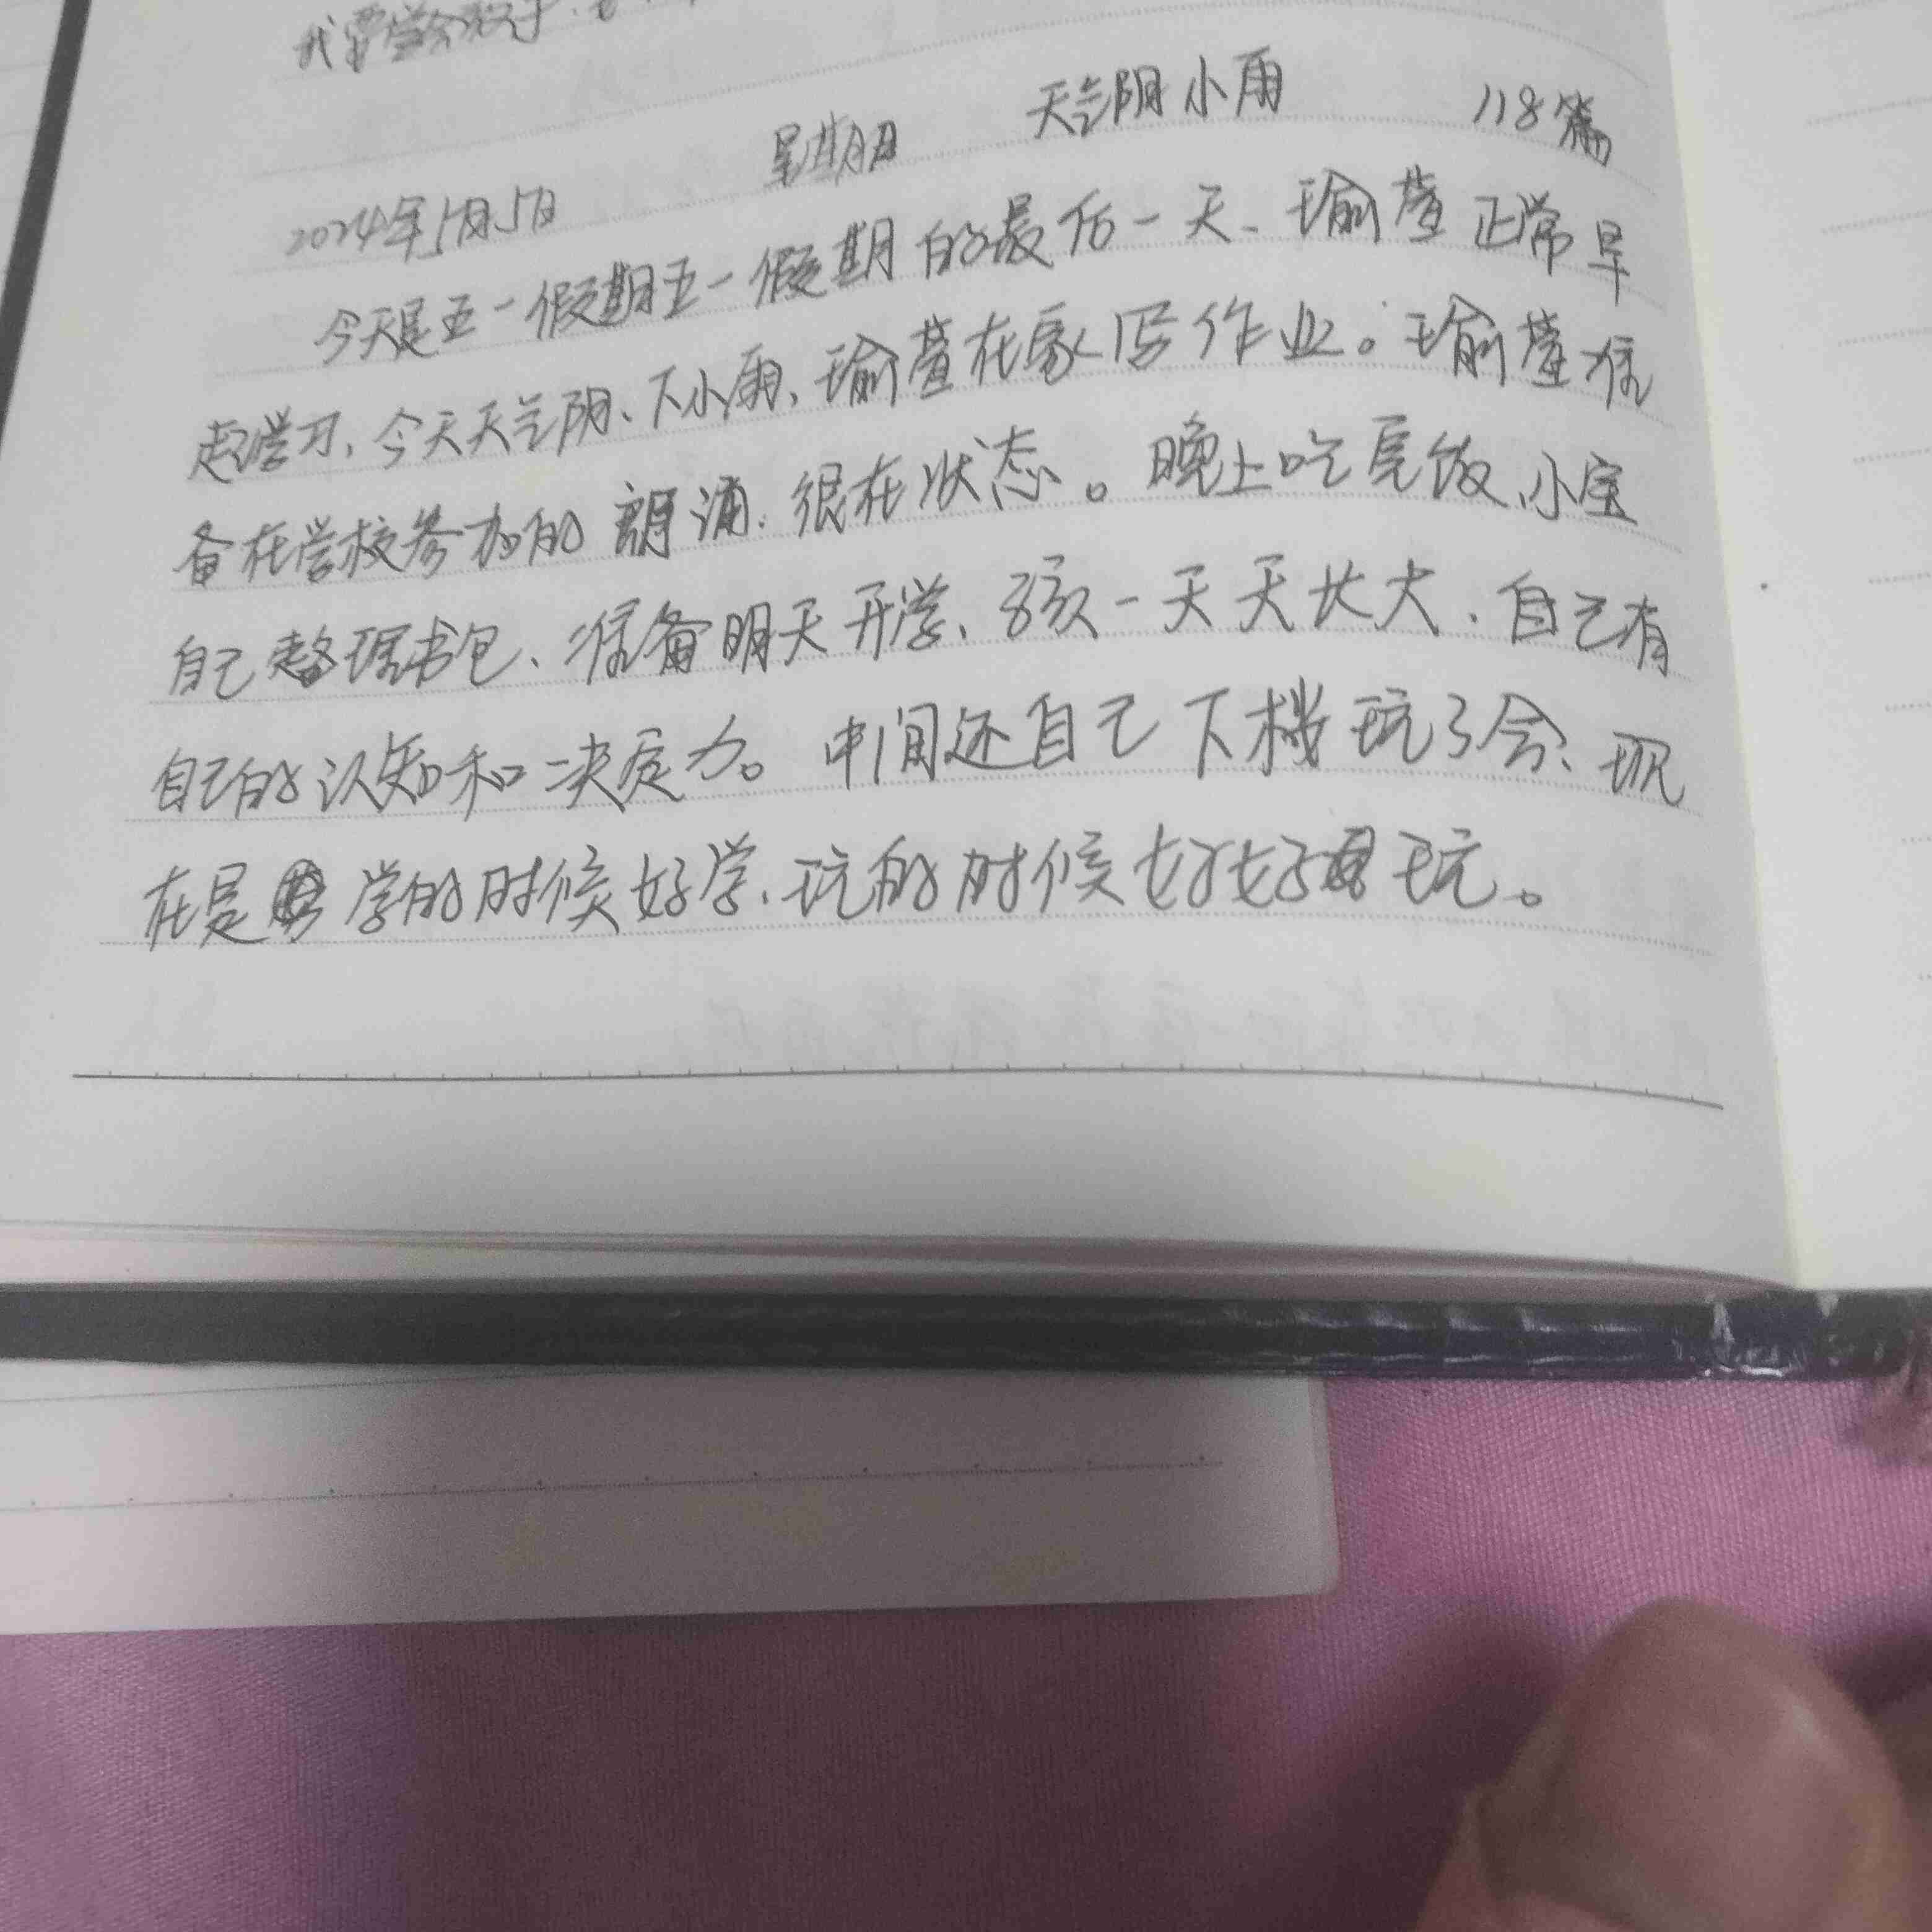 我要学会
2024年5月5日 星期日 天气阴小雨 118篇
今天是五一假期五一假期的最后一天、瑜萱正常早
起学习,今天天气阴、下小雨,瑜萱在家写作业。瑜萱准
备在学校参加的朗诵.很在状态。晚上吃完饭、小宝
自己整理书包、准备明天开学、孩一天天长大、自己有
自己的认知和决定力。中间还自己下楼玩了会、现
在是学的时候好学、玩的时候好好玩。